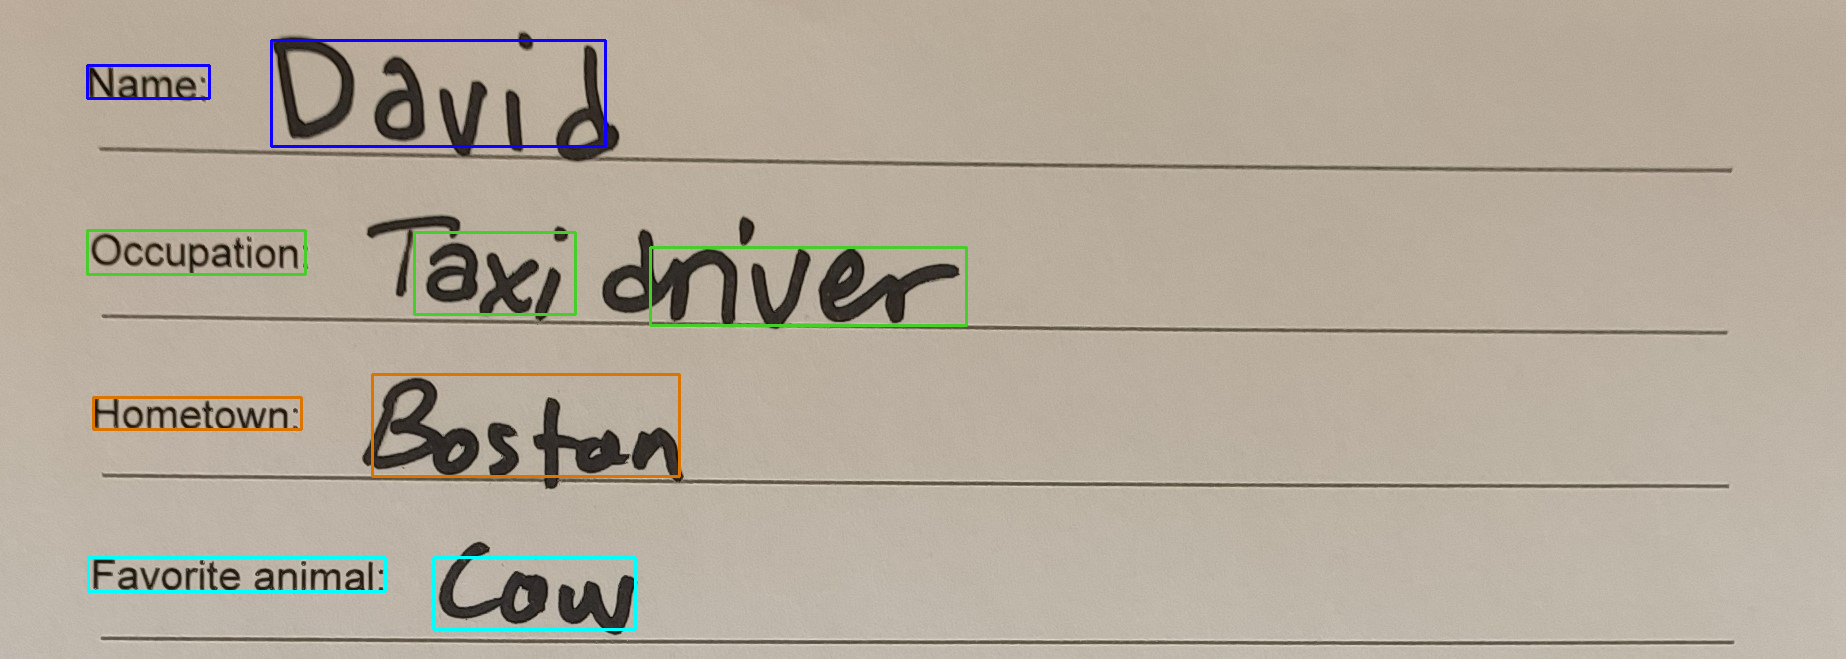 Name: David
Occupation: Taxi driver
Hometown: Boston
Favorite animal: Cow